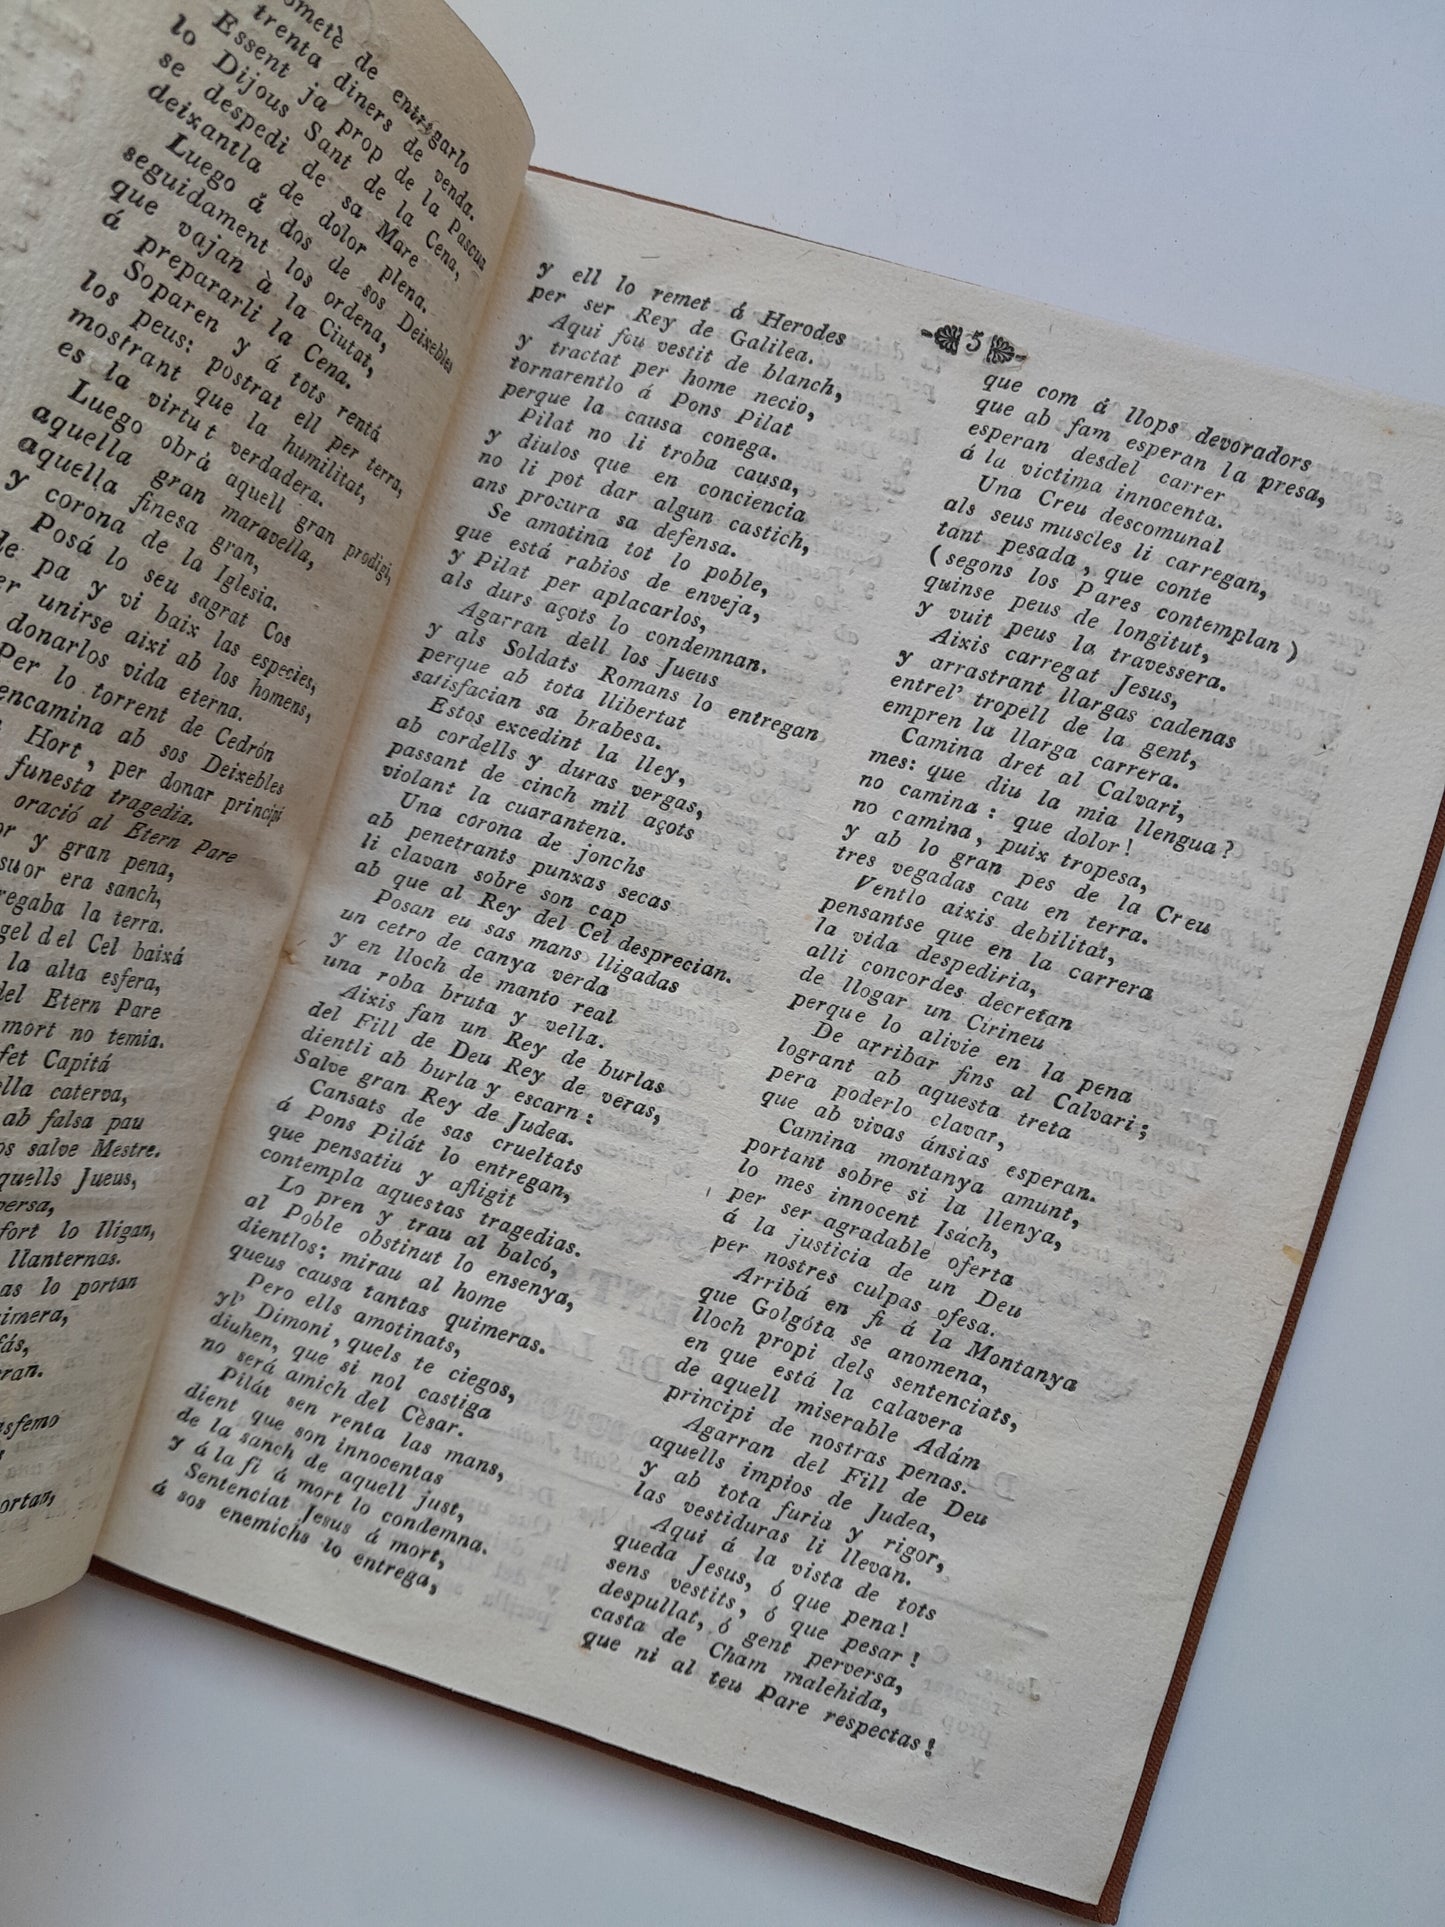 ometè de entregarlo
trenta diners de venda.
Essent ja prop de la Pascua
lo Dijous Sant de la Cena,
se despedi de sa Mare
deixantla de dolor plena.
Luego á dos de sos Deixebles
seguidament los ordena,
que vajan à la Ciutat,
á prepararli la Cena.
Soparen y á tots rentá
los peus: postrat ell per terra,
mostrant que la humilitat,
es la virtut verdadera.
Luego obrá aquell gran prodigi,
aquella gran maravella,
aquella finesa gran,
y corona de la Iglesia.
Posá lo seu sagrat Cos
de pa y vi baix las especies,
er unirse aixi ab los homens,
donarlos vida eterna.
Per lo torrent de Cedrón
encamina ab sos Deixebles
Hort, per donar principi
funesta tragedia.
oració al Etern Pare
or y gran pena,
suor era sanch,
regaba la terra.
gel del Cel baixá
la alta esfera,
del Etern Pare
mort no temia.
fet Capitá
lla caterva,
ab falsa pau
os salve Mestre.
quells Jueus,
versa,
fort lo lligan,
llanternas.
as lo portan
uimera,
fás,
ran.
asfemo
ortan,
5
y ell lo remet á Herodes
per ser Rey de Galilea.
Aqui fou vestit de blanch,
y tractat per home necio,
tornarentlo á Pons Pilat
perque la causa conega.
Pilat no li troba causa,
y diulos que en conciencia
no li pot dar algun castich,
ans procura sa defensa.
Se amotina tot lo poble,
que está rabios de enveja,
y Pilat per aplacarlos,
als durs açots lo condemnan.
Agarran dell los Jueus
y als Soldats Romans lo entregan
perque ab tota llibertat
satisfacian sa brabesa.
Estos excedint la lley,
ab cordells y duras vergas,
passant de cinch mil açots
violant la cuarantena.
Una corona de jonchs
ab penetrants punxas secas
li clavan sobre son cap
ab que al Rey del Cel desprecian.
Posan eu sas mans lligadas
un cetro de canya verda
y en lloch de manto real
una roba bruta y vella.
Aixis fan un Rey de burlas
del Fill de Deu Rey de veras,
dientli ab burla y escarn:
Salve gran Rey de Judea.
Cansats de sas crueltats
á Pons Pilát lo entregan,
que pensatiu y afligit
contempla aquestas tragedias.
Lo pren y trau al balcó,
al Poble obstinat lo ensenya,
dientlos; mirau al home
queus causa tantas quimeras.
Pero ells amotinats,
yl' Dimoni, quels te ciegos,
diuhen, que si nol castiga
no será amich del Cèsar.
Pilát sen renta las mans,
dient que son innocentas
de la sanch de aquell just,
y á la fi á mort lo condemna.
Sentenciat Jesus á mort,
á sos enemichs lo entrega,
que com á llops devoradors
que ab fam esperan la presa,
esperan desdel carrer
á la victima innocenta.
Una Creu descomunal
als seus muscles li carregan,
tant pesada, que conte
(segons los Pares contemplan)
quinse peus de longitut,
y vuit peus la travessera.
Aixis carregat Jesus,
y arrastrant llargas cadenas
entrel' tropell de la gent,
empren la llarga carrera.
Camina dret al Calvari,
mes: que diu la mia llengua?
no camina: que dolor!
no camina, puix tropesa,
y ab lo gran pes de la Creu
tres vegadas cau en terra.
Ventlo aixis debilitat,
pensantse que en la carrera
la vida despediria,
alli concordes decretan
de llogar un Cirineu
perque lo alivie en la pena
De arribar fins al Calvari;
logrant ab aquesta treta
pera poderlo clavar,
que ab vivas ánsias esperan.
Camina montanya amunt,
portant sobre si la llenya,
lo mes innocent Isách,
per ser agradable oferta
á la justicia de un Deu
per nostres culpas ofesa.
Arribá en fi á la Montanya
que Golgóta se anomena,
lloch propi dels sentenciats,
en que está la calavera
de aquell miserable Adám
principi de nostras penas.
Agarran del Fill de Deu
aquells impios de Judea,
y ab tota furia y rigor,
las vestiduras li llevan.
Aqui á la vista de tots
queda Jesus, ó que pena!
sens vestits, ó que pesar!
despullat, ó gent perversa,
casta de Cham malehida,
que ni al teu Pare respectas!